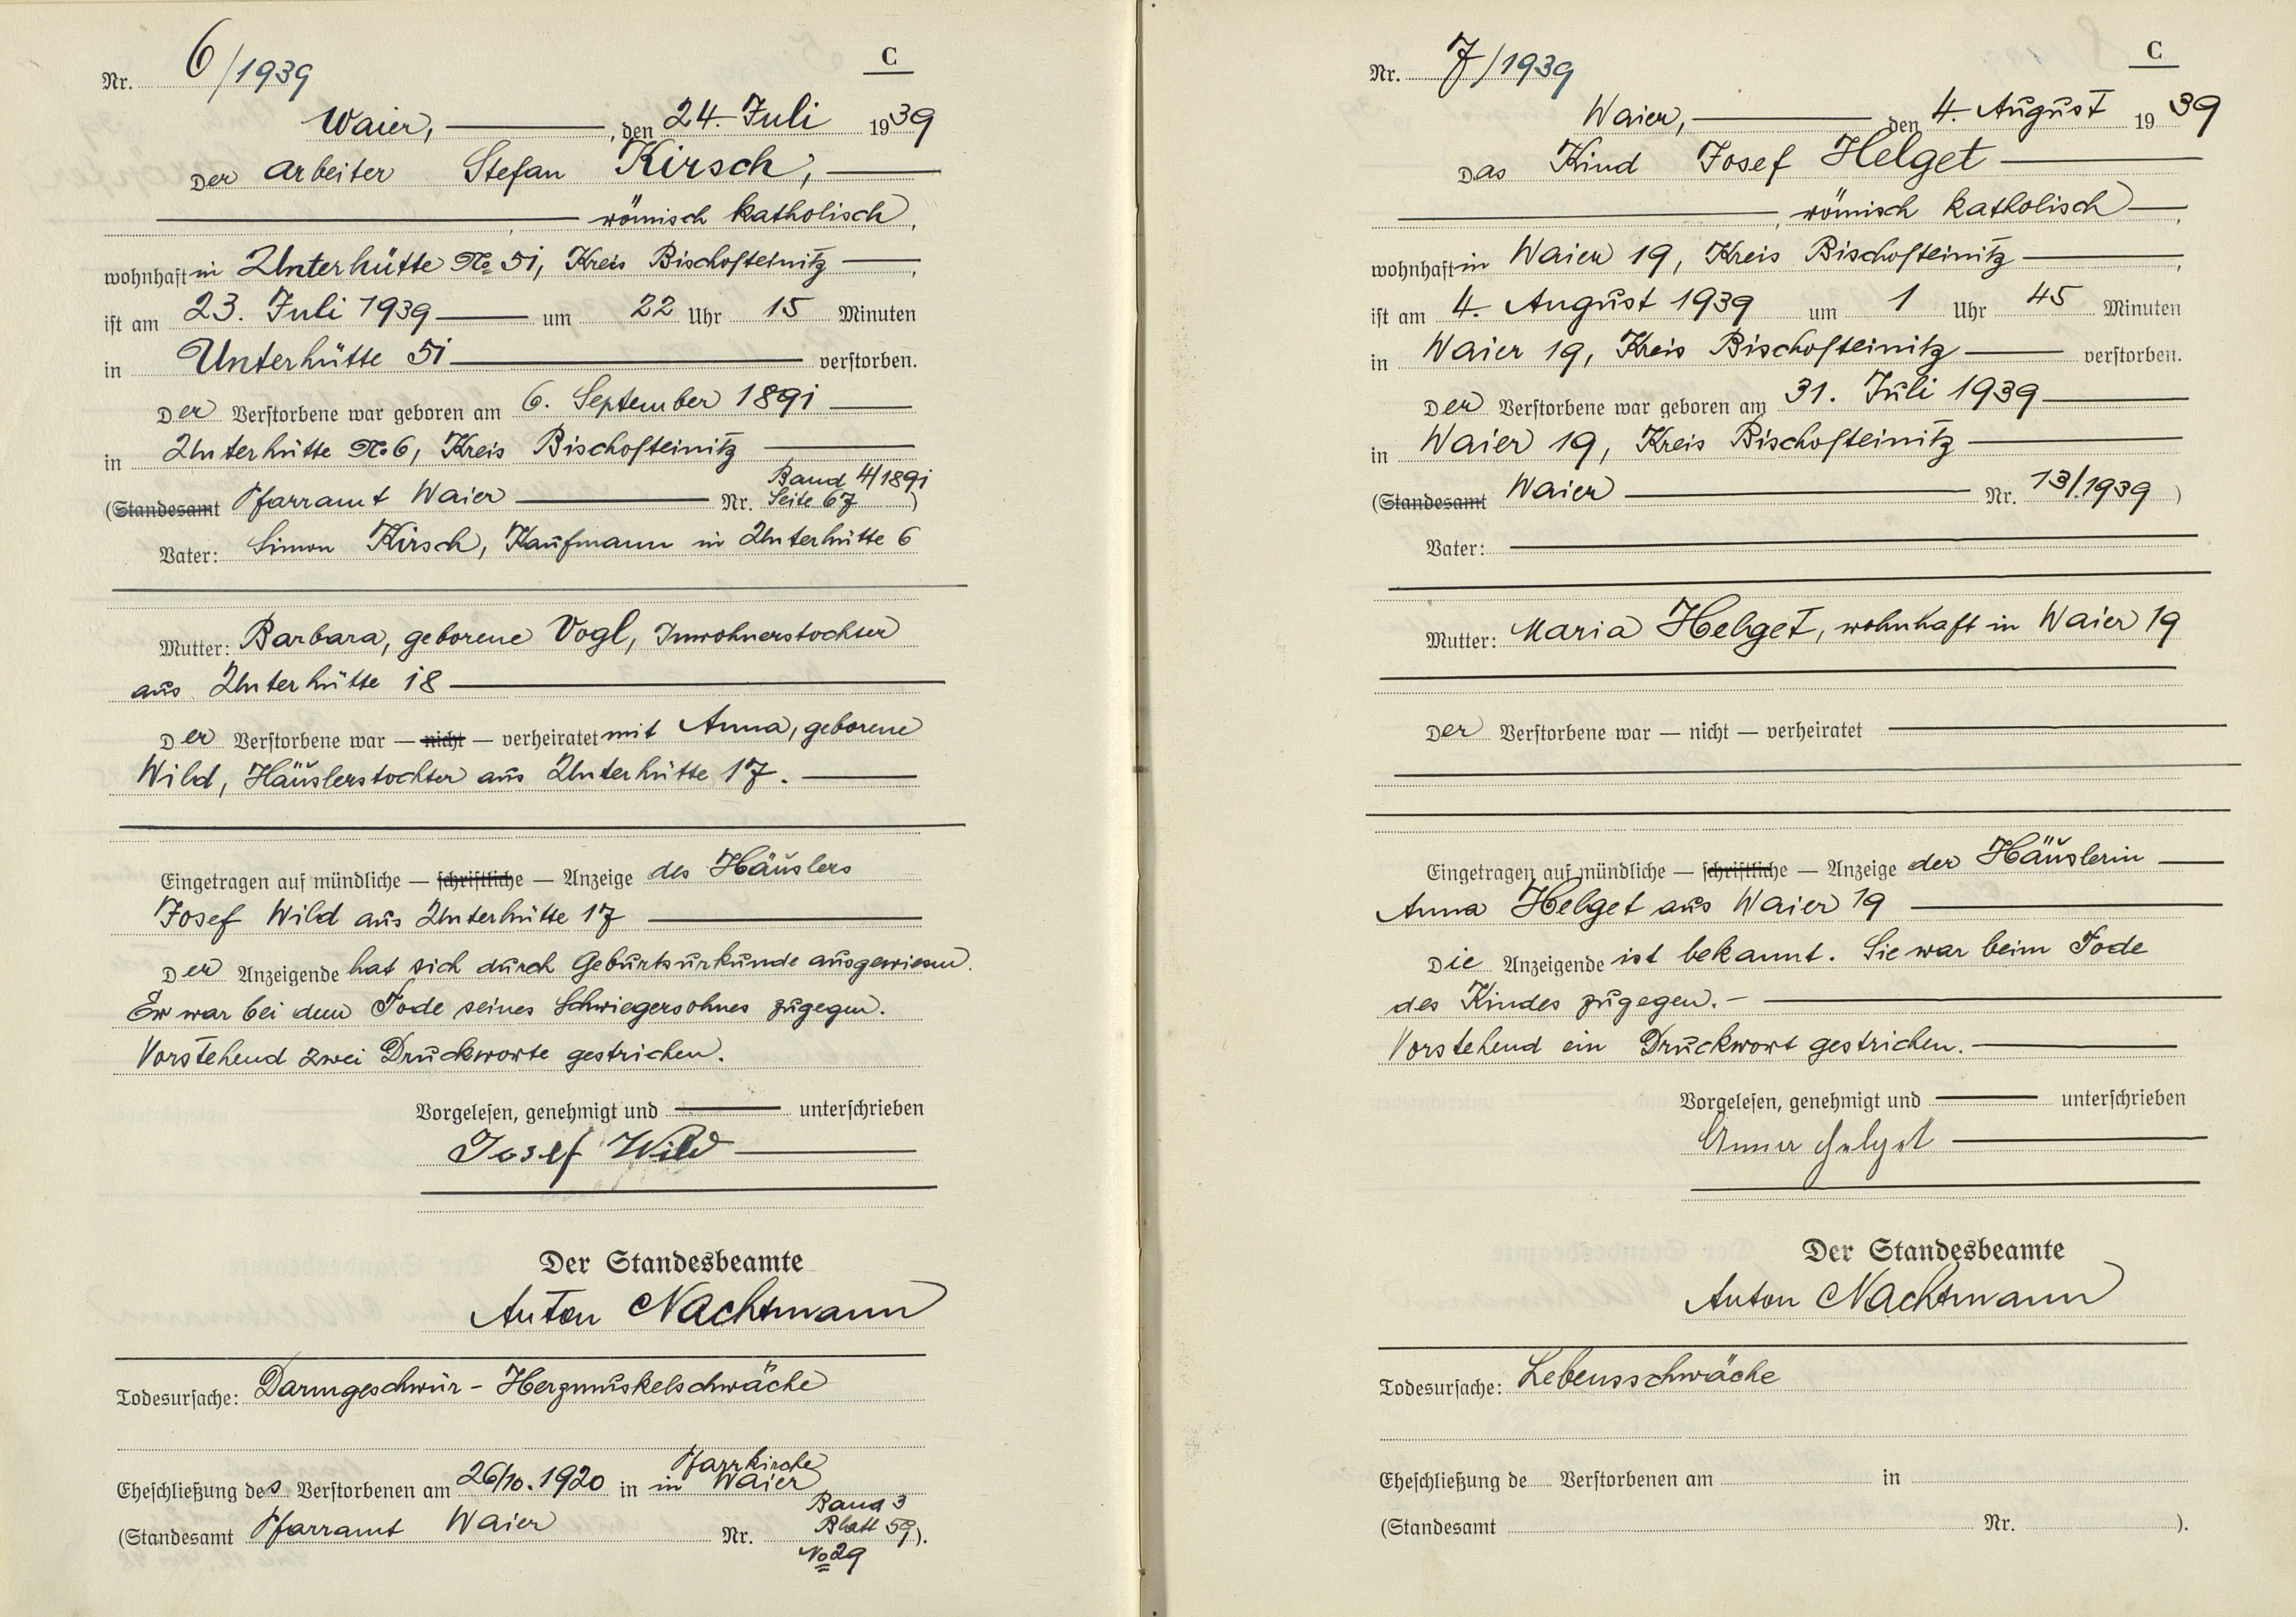 C
Nr. 6/1939
Waier, , den 24. Juli 1939
Der Arbeiter Stefan Kirsch,
, römisch katholisch,
wohnhaft in Unterhütte No 51, Kreis Bischofteinitz,
ist am 23. Juli 1939 um 22 Uhr 15 Minuten
in Unterhütte 51 verstorben.
Der Verstorbene war geboren am 6. September 1891
in Unterhütte No 6, Kreis Bischofteinitz
Band 4/1891
(Standesamt Pfarramt Waier Nr. Seite 67)
Vater: Simon Kirsch, Kaufmann in Unterhütte 6
Mutter: Barbara, geborene Vogl, Inwohnerstochter
aus Unterhütte 18
Der Verstorbene war — nicht — verheiratet mit Anna, geborene
Wild, Häuslerstochter aus Unterhütte 17.
Eingetragen auf mündliche — schriftliche — Anzeige des Häuslers
Josef Wild aus Unterhütte 17
Der Anzeigende hat sich durch Geburtsurkunde ausgewiesen.
Er war bei dem Tode seines Schwiegersohnes zugegen.
Vorstehend zwei Druckworte gestrichen.
Vorgelesen, genehmigt und unterschrieben
Josef Wild
Der Standesbeamte
Anton Nachtmann
Todesursache: Darmgeschwür - Herzmuskelschwäche
Pfarrkirche
Eheschließung des Verstorbenen am 26/10.1920 in in Waier
Band 3
Blatt 59
(Standesamt Pfarramt Waier Nr. ).
No 29
C
Nr. 7/1939
Waier, den 4. August 1939
Das Kind Josef Helget
, römisch katholisch,
wohnhaft in Waier 19, Kreis Bischofteinitz,
ist am 4. August 1939 um 1 Uhr 45 Minuten
in Waier 19, Kreis Bischofteinitz verstorben.
Der Verstorbene war geboren am 31. Juli 1939
in Waier 19, Kreis Bischofteinitz
(Standesamt Waier Nr. 13/.1939)
Vater:
Mutter: Maria Helget, wohnhaft in Waier 19
Der Verstorbene war — nicht — verheiratet
Eingetragen auf mündliche — schriftliche — Anzeige der Häuslerin
Anna Helget aus Waier 19
Die Anzeigende ist bekannt. Sie war beim Tode
des Kindes zugegen.-
Vorstehend ein Druckwort gestrichen.
Vorgelesen, genehmigt und unterschrieben
Anna Helget
Der Standesbeamte
Anton Nachtmann
Todesursache: Lebensschwäche
Eheschließung de Verstorbenen am in
(Standesamt Nr. ).